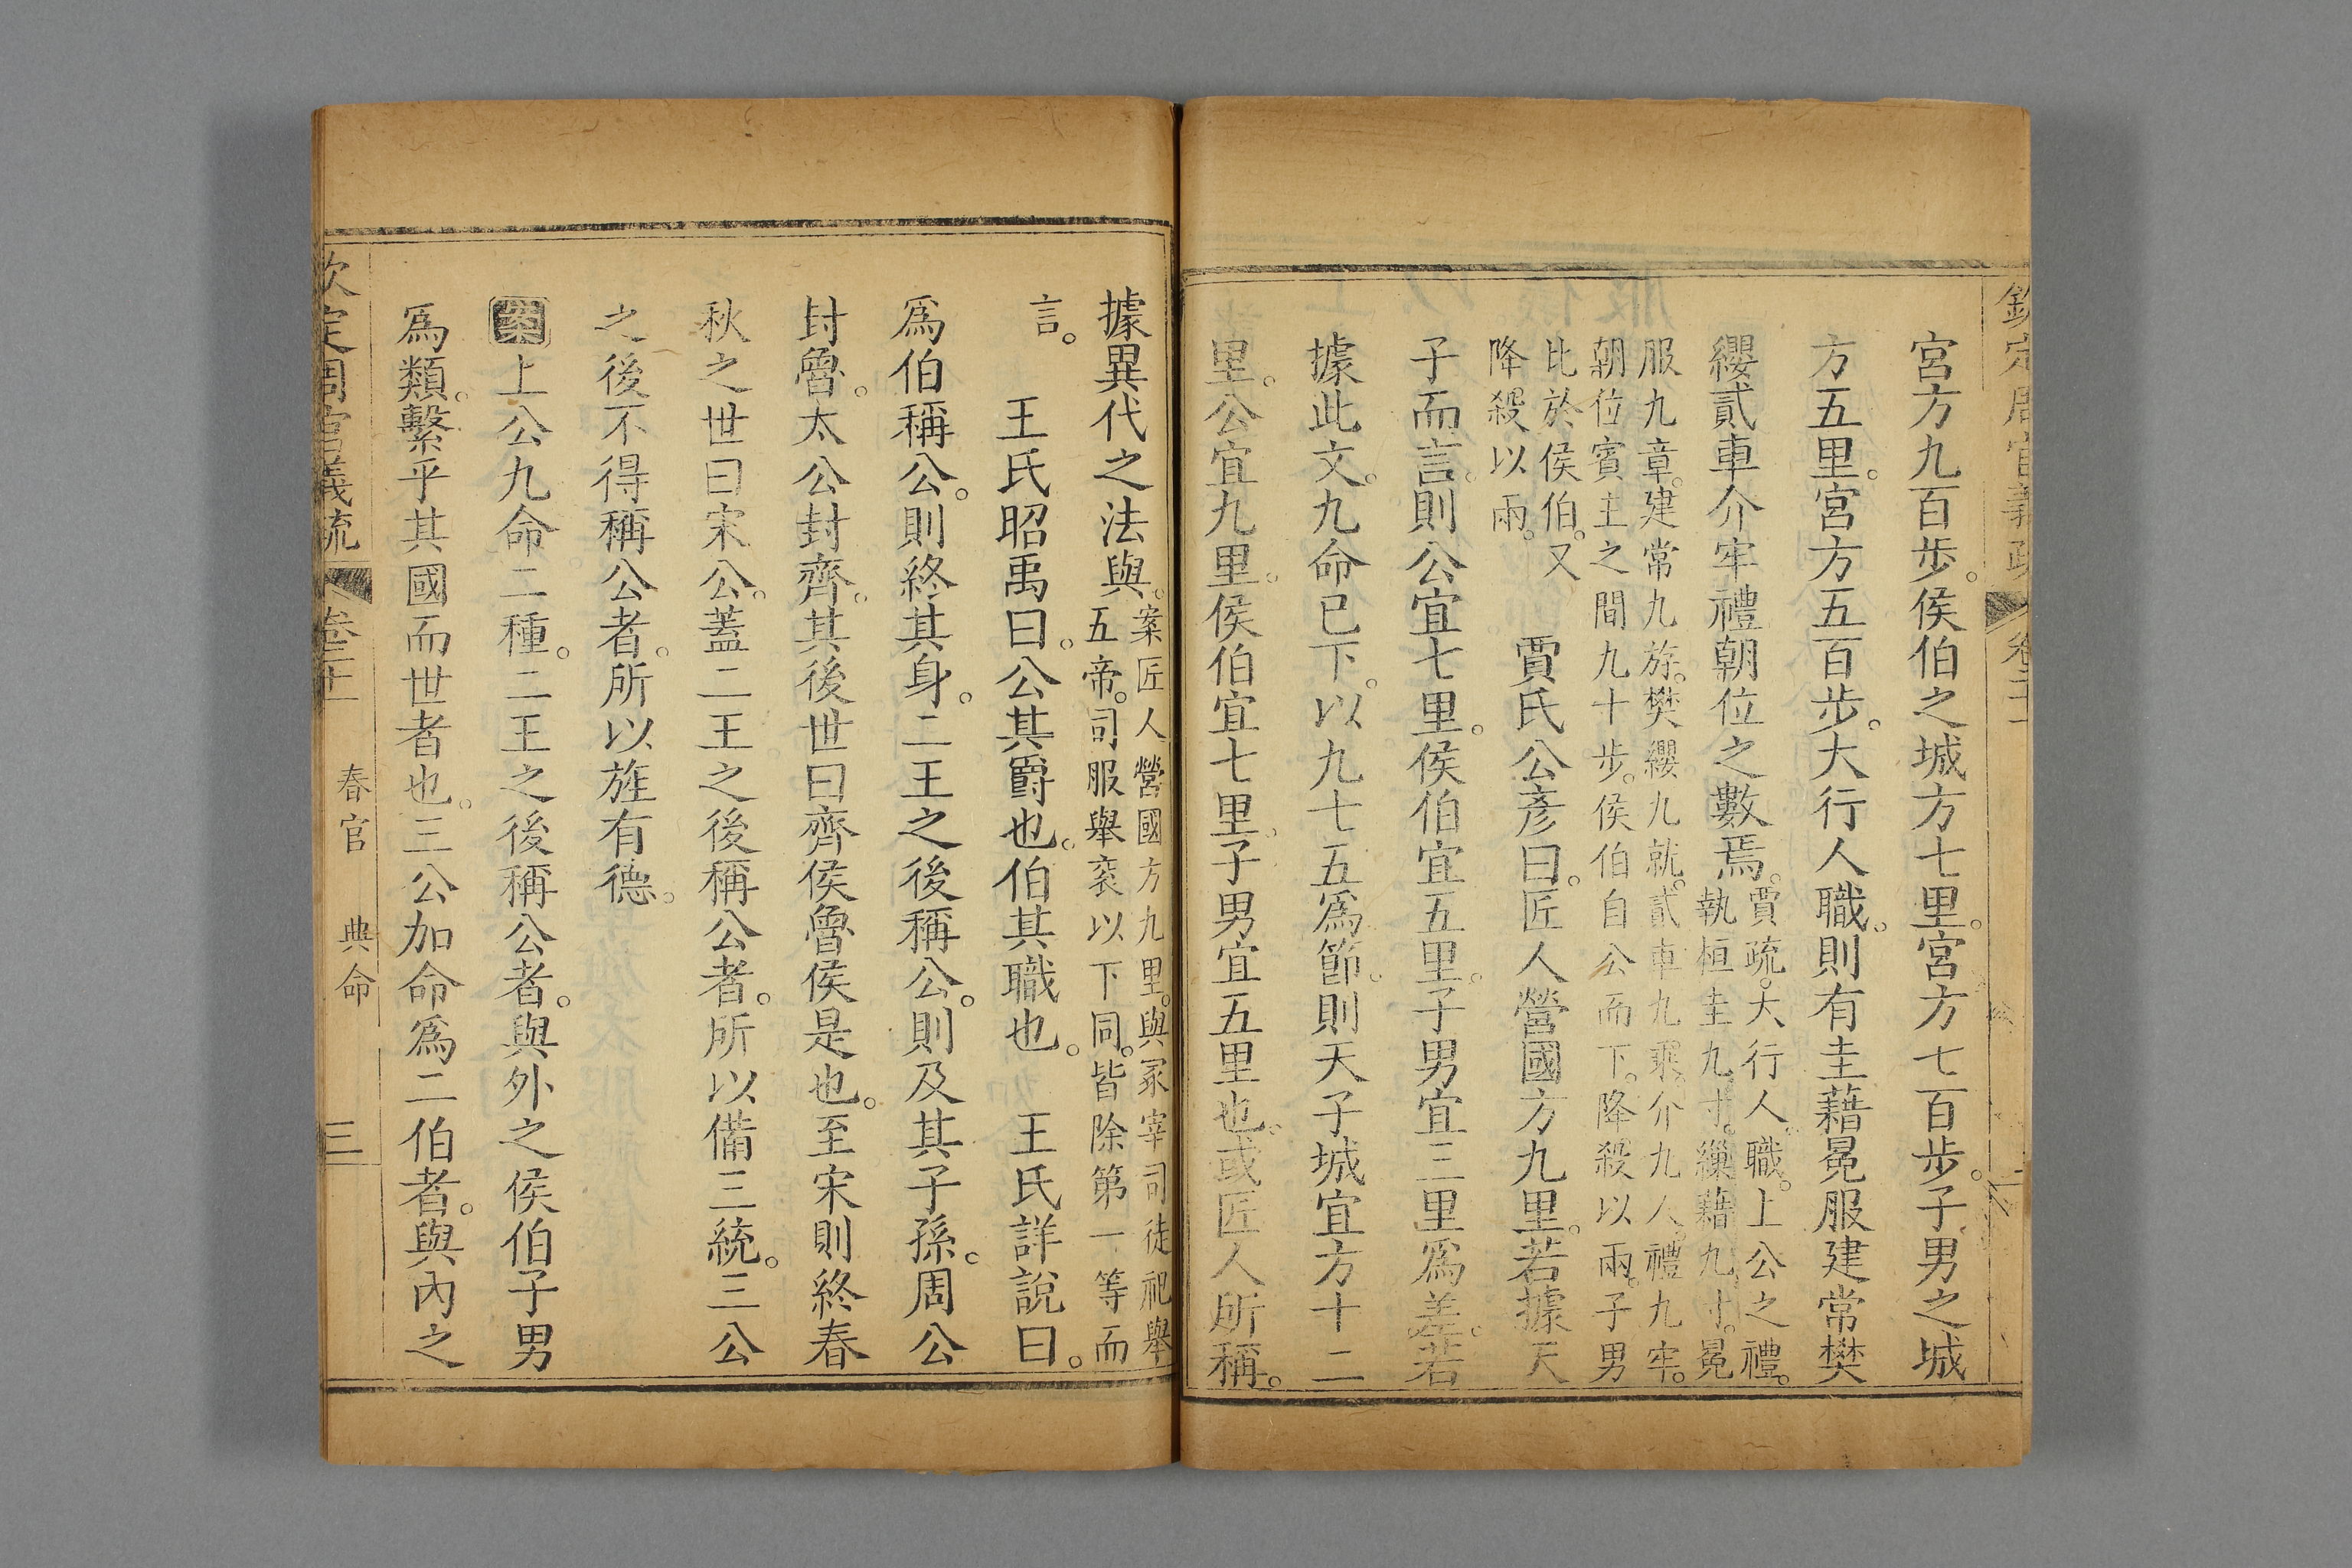 宮方九百步。侯伯之城方七里。宮方七百步。子男之城
方五里。宮方五百步。大行人職。則有圭藉冕服建常樊
纓貳車介牢禮朝位之數焉。賈疏。大行人職。上公之禮。
執桓圭九寸。繅藉九寸。冕
服九章。建常九斿。樊纓九就。貳車九乘。介九人。禮九牢。
朝位賓主之間九十步。侯伯自公而下。降殺以兩。子男
比於侯伯。又
降殺以兩。
賈氏公彥曰。匠人營國方九里。若據天
子而言。則公宜七里。侯伯宜五里。子男宜三里爲差。若
據此文。九命已下。以九七五爲節。則天子城宜方十二
里。公宜九里。侯伯宜七里。子男宜五里也。或匠人所稱。
據異代之法與。案匠人營國方九里。與冢宰司徒祀舉
五帝。司服舉衮以下同。皆除第一等而
言。
王氏昭禹曰。公其爵也。伯其職也。 王氏詳說曰。
爲伯稱公。則終其身。二王之後稱公。則及其子孫。周公
封魯。太公封齊。其後世曰齊侯魯侯是也。至宋則終春
秋之世曰宋公。蓋二王之後稱公者。所以備三統。三公
之後不得稱公者。所以旌有德。
案上公九命二種。二王之後稱公者。與外之侯伯子男
爲類。繫乎其國而世者也。三公加命爲二伯者。與內之
欽定周官義疏 卷二十一 春官 典命 三